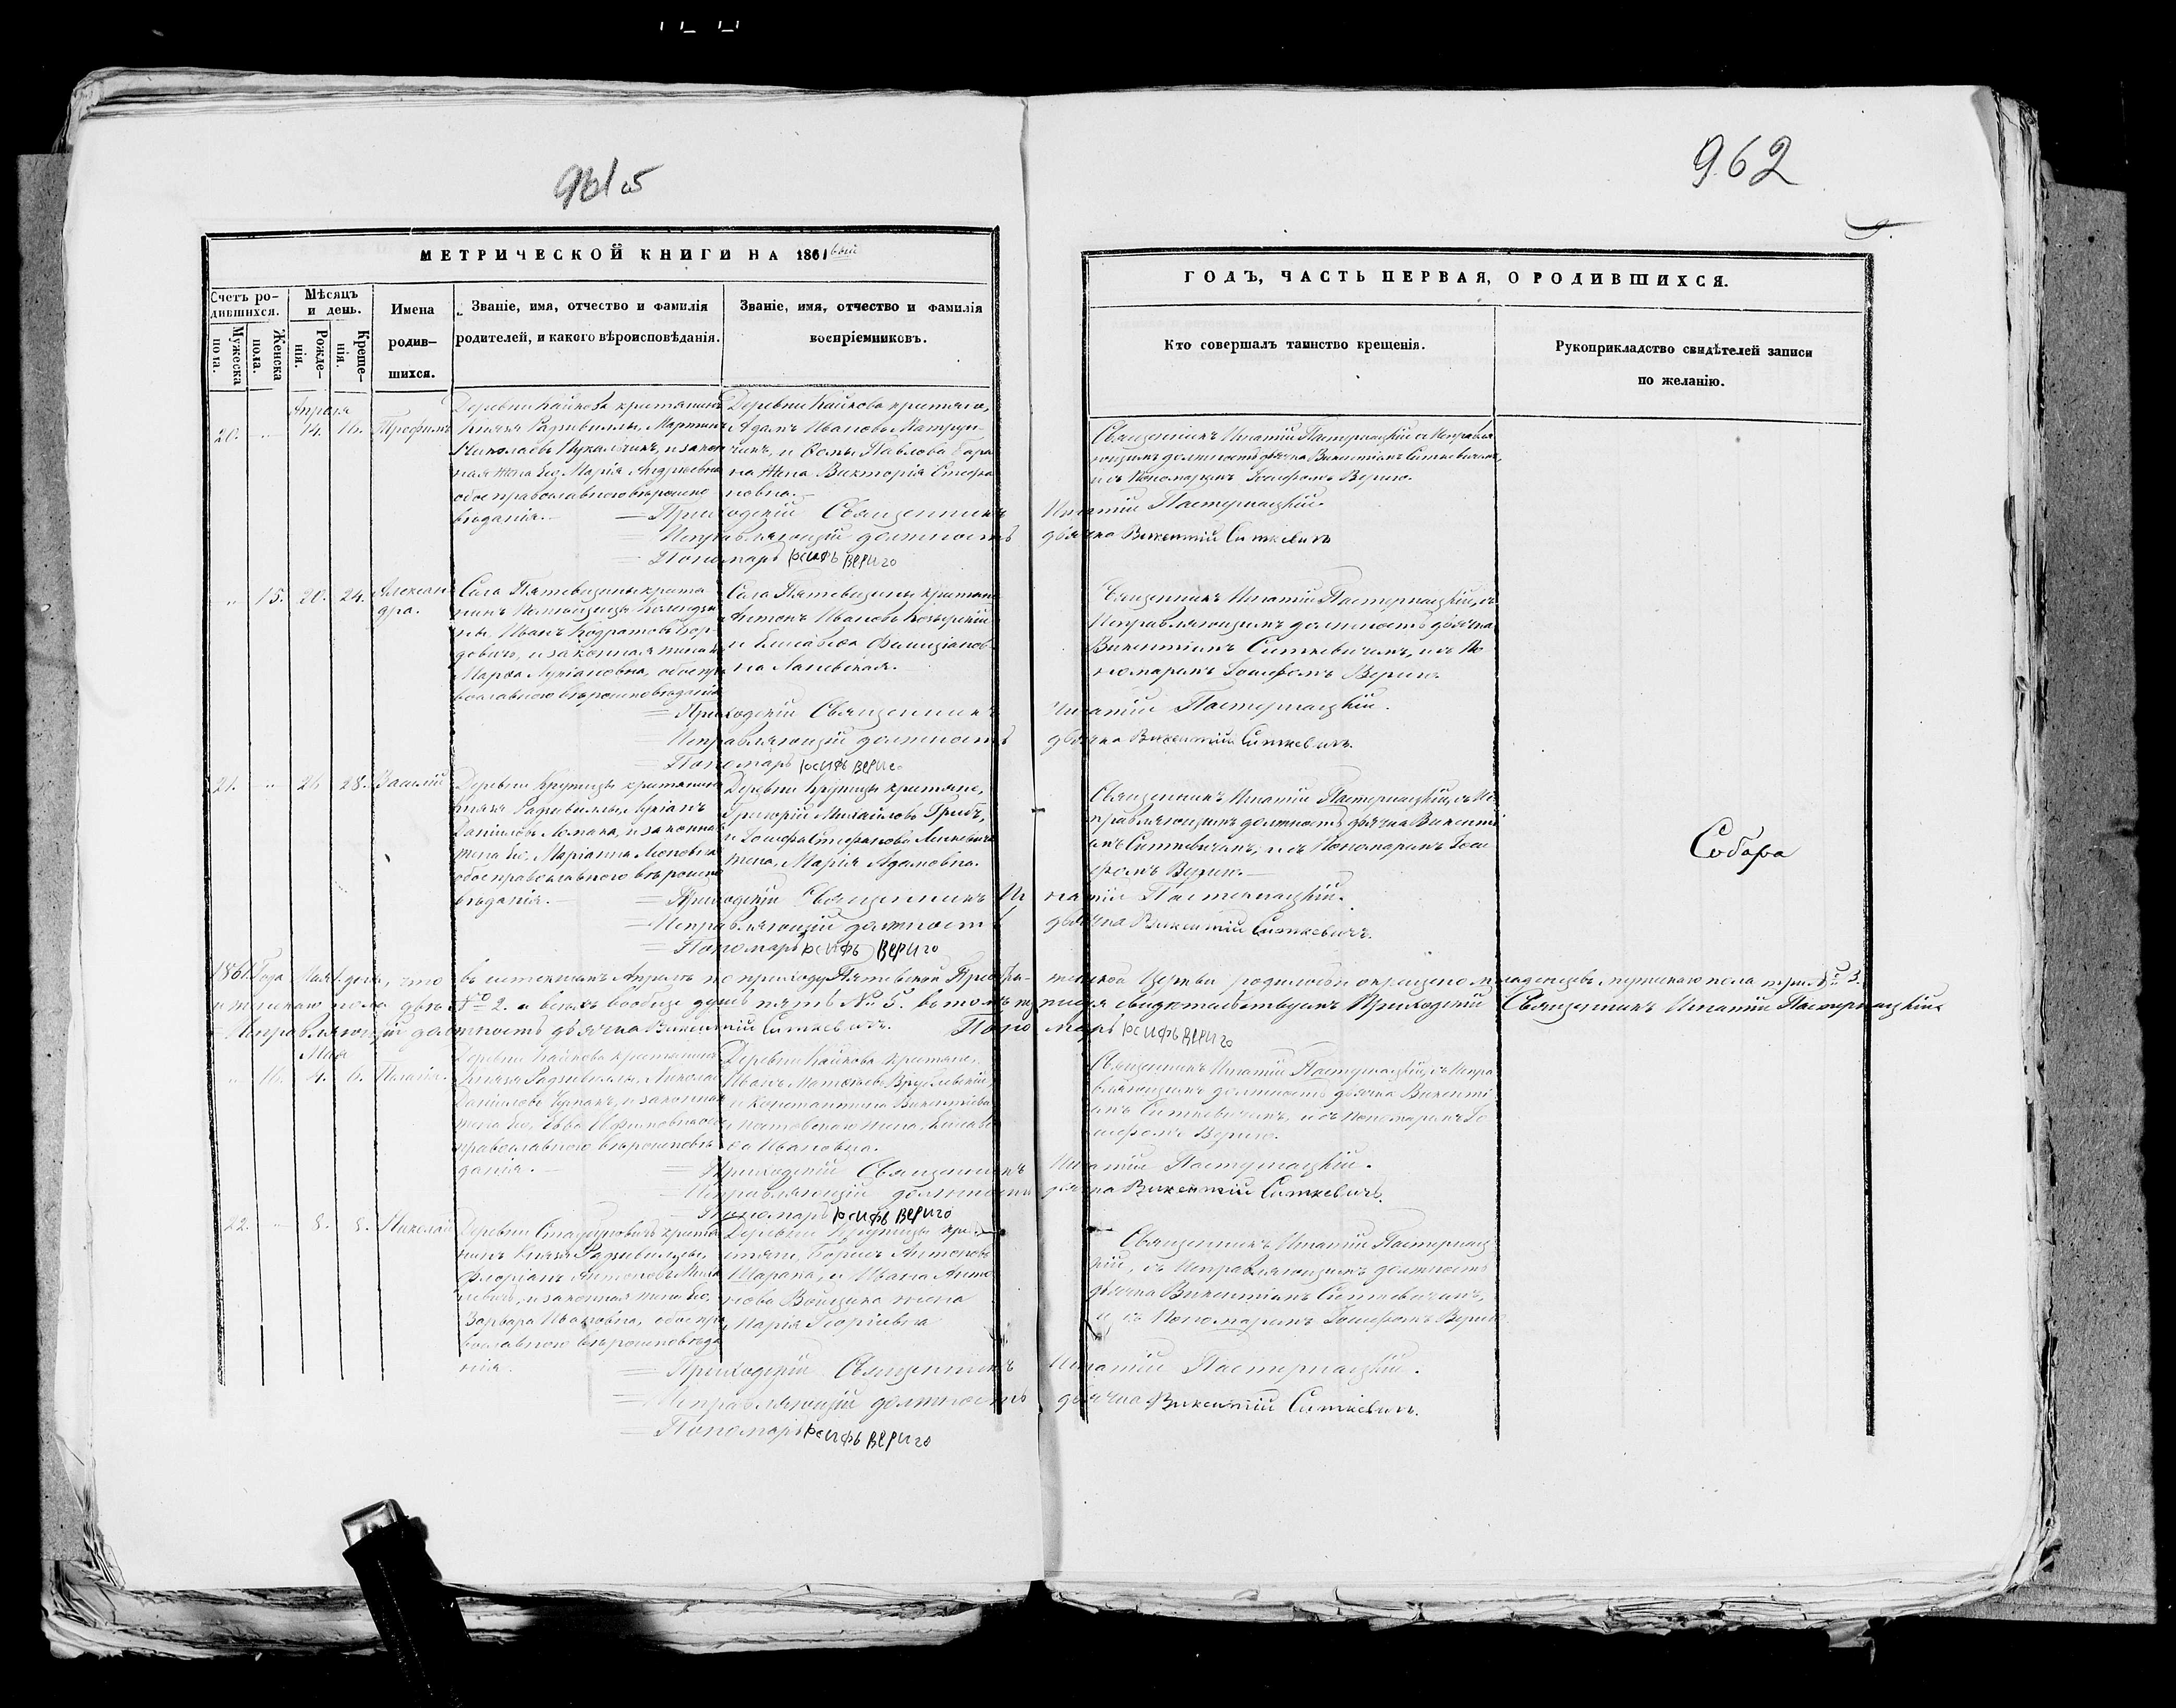 961 об
962
9.
МЕТРИЧЕСКОЙ КНИГИ НА 1861 вый
ГОДЪ, ЧАСТЬ ПЕРВАЯ, О РОДИВШИХСЯ.
Счетъ ро-
дившихся.
Мужеска
пола.
Женска
пола.
Мѣсяцъ
и день.
Рожде-
нія.
Креще-
нія.
Имена
родив-
шихся.
Званіе, имя, отчество и фамилія
родителей, и какого вѣроисповѣданія.
Званіе, имя, отчество и фамилія
воспріемниковъ.
Кто совершалъ таинство крещенія.
Рукоприкладство свидѣтелей записи
по желанію.
Апрѣля
20. 14. 16. Трофимъ
Деревни Кайкова крестьянинъ
Князя Радзивиллы, Мартинъ
Николаевъ и закон
ная жена его Марія Андреевна
обое православного вѣроиспо
вѣданія.
Деревни Кайкова крестьяне,
Адамъ Ивановъ
и Ѳомы Павлова
жена Викторія Стефа
новна.
Священникъ Игнатій Пастернацкій съ Исправля
ющимъ должность дьячка Викентіемъ Ситкевичемъ,
и съ Пономаремъ Іосифомъ Вериго.
Приходскій Священникъ Игнатій Пастернацкій.
Исправляющій должность дьячка Викентій Ситкевичъ
Пономарь Іосифъ Вериго
15. 20. 24. Александра.
Села Пятевщины крестья
нинъ Помѣщицы
Иванъ Кодратовъ Бор-
довичъ, и законная жена его
Марѳа Лукіановна, обое пра
вославного вѣроисповѣданія
Села Пятевщины крестьяне
Антонъ Ивановъ
и Елисавеѳа Фелиціанов
на
Священникъ Игнатій Пастернацкій, съ
Исправляющимъ должность дьячка
Викентіемъ Ситкевичемъ, и съ По
номаремъ Іосифомъ Вериго.
Приходскій Священникъ Игнатій Пастернацкій.
Исправляющій должность дьячка Викентій Ситкевичъ.
Пономарь Іосифъ Вериго
21. 26 28. Василій
Деревни Крупицы крестьянинъ
Князя Радзивиллы, Лукіанъ
Даниловъ Ломака, и законная
жена его, Маріанна Леоновна
обое православного вѣроиспо
вѣданія.
Деревни Крупицы крестьяне,
Григорій Михайловъ Грибъ,
и Іосифа Стефанова
жена, Марія Адамовна.
Священникъ Игнатій Пастернацкій, съ Ис
правляющимъ должность дьячка Викенті
емъ Ситкевичемъ, и съ Пономаремъ Іоси
фомъ Вериго.
Приходскій Священникъ Игнатій Пастернацкій.
Исправляющій должность дьячка Викентій Ситкевичъ.
Пономарь Іосифъ Вериго
1861 Года Мая 1 дня, что въ истекшемъ Апрѣлѣ по приходу Пятевской Преображенской Церкви родилось и окрещено младенцевъ мужескаго пола три № 3.
и женскаго пола двѣ № 2. а всѣхъ вообще душъ пять № 5. въ томъ свидѣтельствуемъ Приходскій Священникъ Игнатій Пастернацкій
Исправляющій должность дьячка Викентій Ситкевичъ. Пономарь Іосифъ Вериго
Мая
16. 4. 6. Пелагія.
Деревни Кайкова крестьянинъ
Князя Радзивиллы, Николай
Даниловъ и законная
жена его, Евва обое
православного вѣроисповѣ
данія.
Деревни Кайкова крестьяне,
Иванъ Матѳеевъ Врублевскій,
и Константина Викентіева
жена, Елисаве
ѳа Ивановна.
Священникъ Игнатій Пастернацкій, съ Испра
вляющимъ должность дьячка Викенті
емъ Ситкевичемъ, и съ Пономаремъ Іо
сифомъ Вериго.
Приходскій Священникъ Игнатій Пастернацкій.
Исправляющій должность дьячка Викентій Ситкевичъ.
Пономарь Іосифъ Вериго
22. 8. 8. Николай
Деревни крестья
нинъ Князя Радзивиллы,
Флоріанъ Антоновъ
и законная жена его,
Варвара Ивановна, обое пра
вославного вѣроисповѣда
нія.
Деревни Крупицы крес
тьяне, Борисъ Антоновъ
Шарапа, и Ивана Анто
нова Войцика жена
Марія Георгіевна
Священникъ Игнатій Пастернац
кій, съ Исправляющимъ должность
дьячка Викентіемъ Ситкевичемъ,
и съ Пономаремъ Іосифомъ Вериго
Приходскій Священникъ Игнатій Пастернацкій.
Исправляющій должность дьячка Викентій Ситкевичъ.
Пономарь Іосифъ Вериго